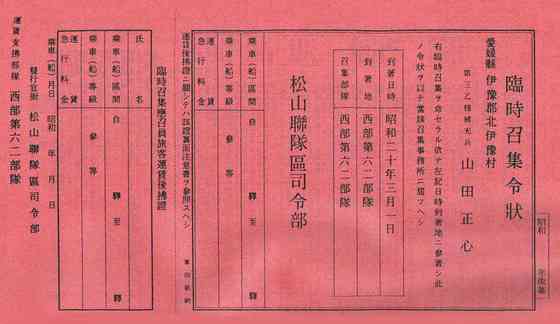 臨時召集令状
愛媛縣 伊豫郡北伊豫村
第三乙種補充兵 山田正心
右臨時召集ヲ命セラル依テ左記日時到著地ニ參著シ此
ノ令状ヲ以テ當該召集事務所ニ届ツヘシ
到著日時 昭和二十年三月一日
到著地 西部第六二部隊
召集部隊 西部第六二部隊
松山聯隊區司令部
乘車(船)區間 自 驛 至 驛
乘車(船)等級 參等
運賃
急行料金
運賃後拂證ニ關シテハ該證裏面注意書ヲ參照スヘシ
臨時召集應召員旅客運賃後拂證
氏名
乘車(船)區間 自 驛 至 驛
乘車(船)等級 參等
運賃
急行料金
乘車(船)月日 昭和 年 月 日
發行官衙 松山聯隊區司令部
運賃支拂部隊 西部第六二部隊
昭和